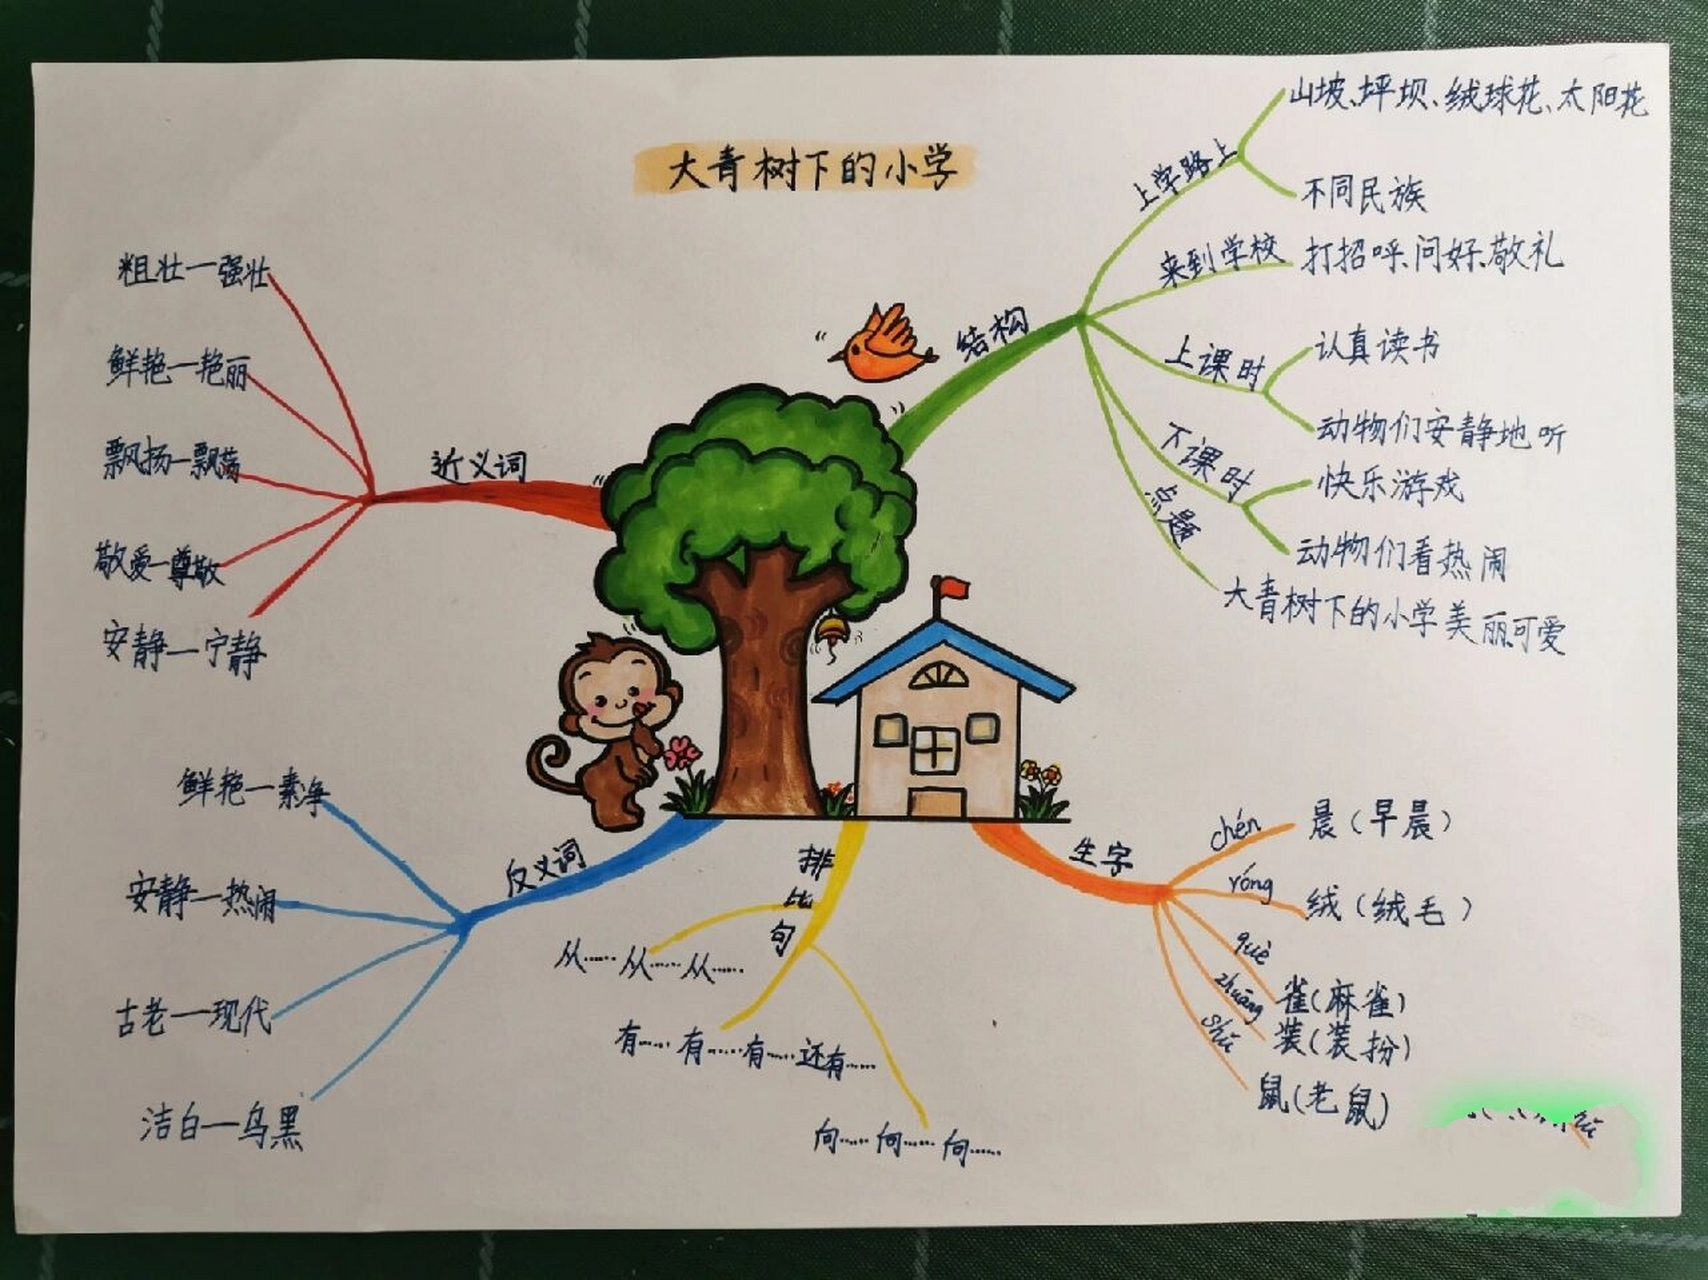 大青树下的小学
结构
上学路上
山坡、坪坝、绒球花、太阳花
不同民族
来到学校
打招呼、问好、敬礼
上课时
认真读书
动物们安静地听
下课时
快乐游戏
动物们看热闹
点题
大青树下的小学美丽可爱
近义词
粗壮—强壮
鲜艳—艳丽
飘扬—飘荡
敬爱—尊敬
安静—宁静
反义词
鲜艳—素净
安静—热闹
古老—现代
洁白—乌黑
排比句
从……从……从……
有……有……有……还有……
向……向……向……
生字
chén
晨（早晨）
róng
绒（绒毛）
què
雀（麻雀）
zhuāng
装（装扮）
shǔ
鼠（老鼠）